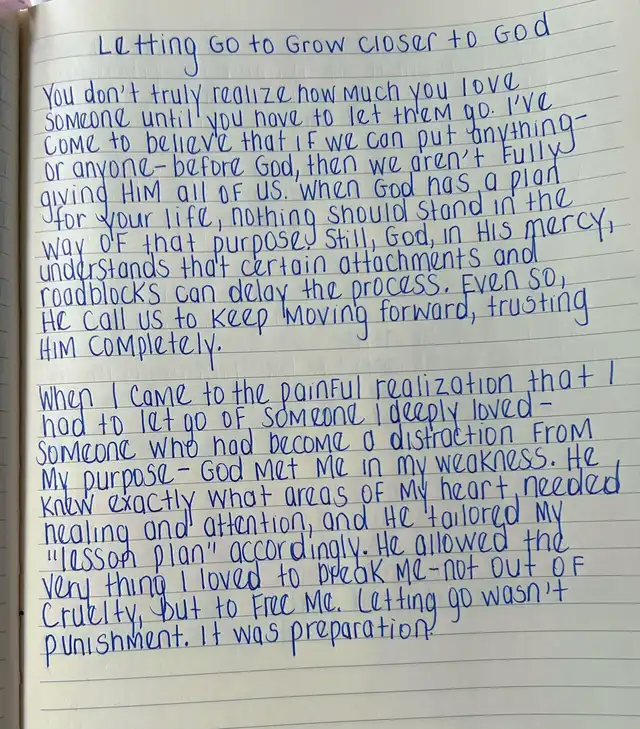 Letting Go to Grow closer to God
You don't truly realize how much you love
someone until you have to let them go. I've
come to believe that if we can put anything-
or anyone-before God, then we aren't fully
giving Him all of us. When God has a plan
for your life, nothing should stand in the
way of that purpose. Still, God, in His mercy,
understands that certain attachments and
roadblocks can delay the process. Even so,
He call us to keep moving forward, trusting
Him completely.
When I came to the painful realization that I
had to let go of someone I deeply loved-
someone who had become a distraction from
my purpose-God met me in my weakness. He
knew exactly what areas of my heart needed
healing and attention, and He tailored my
"lesson plan" accordingly. He allowed the
very thing I loved to break me-not out of
cruelty, but to free me. Letting go wasn't
punishment. It was preparation.